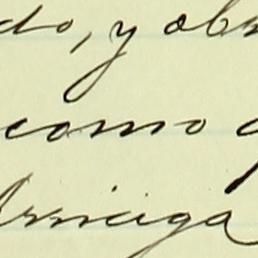 do, y obr
como q
Arsiciga